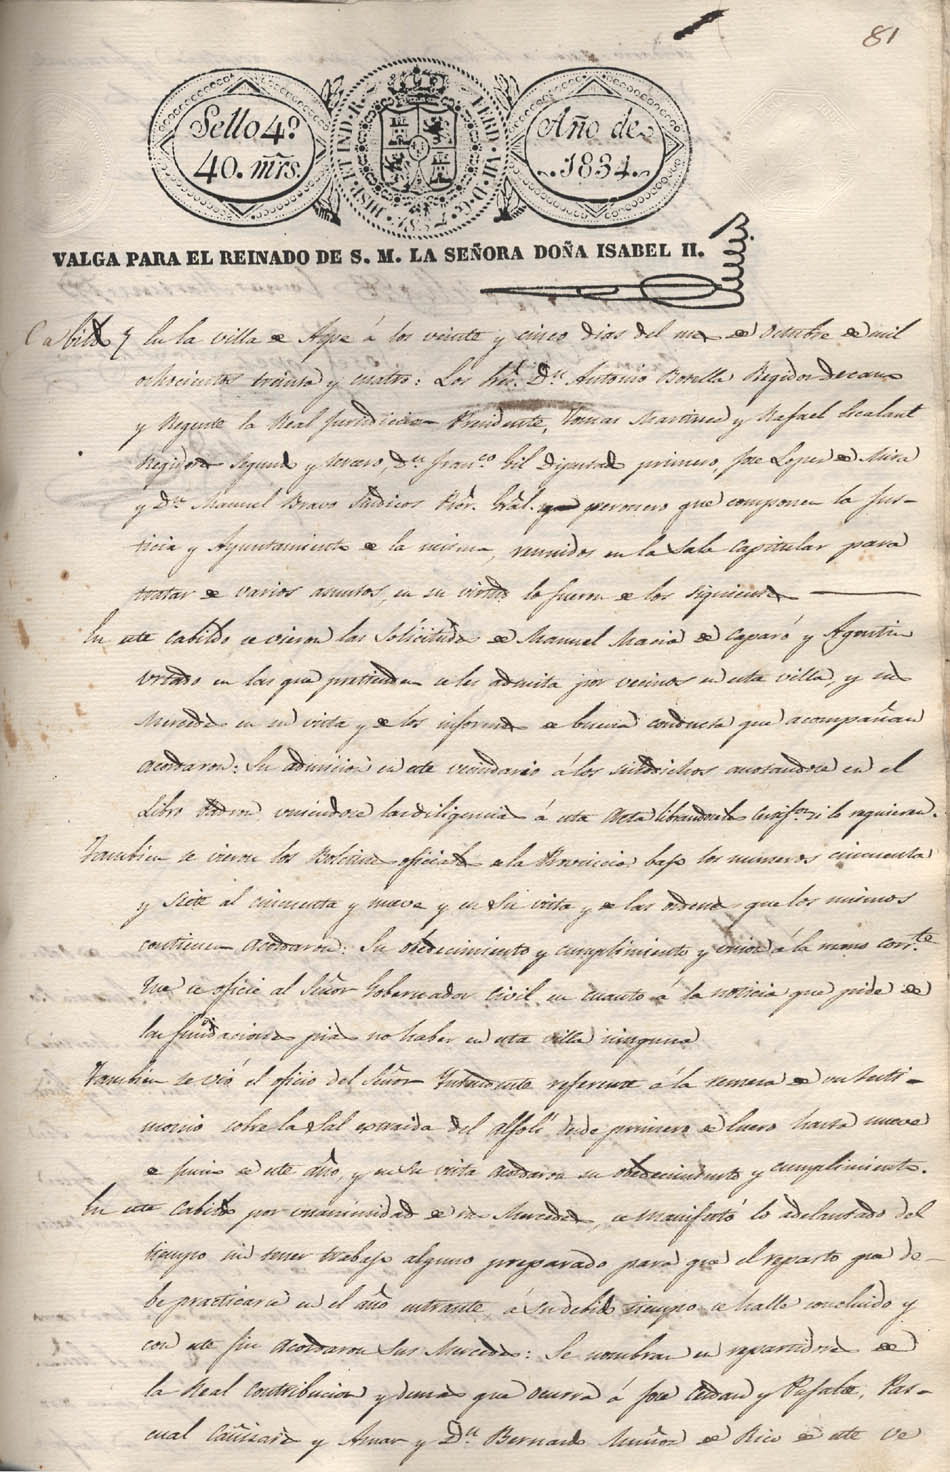 81
Sello 4º
40. mrs.
HISP. ET IND. R.
FERD. VII. D. G.
Año de
1834.
VALGA PARA EL REINADO DE S. M. LA SEÑORA DOÑA ISABEL II.
Cabildo En la villa de Aspe á los veinte y cinco dias del mes de Octubre de mil
ochocientos treinta y cuatro: Los Sres. Dn. Antonio Botella Regidor Decano
y Regente la Real Jurisdiccion Presidente, Tomas Martinez y Rafael Escalant
Regidores Segundo y tercero, Dn. Franco. Gil Diputado primero, Jose Lopez de Mira
y Dn. Manuel Bravo Sindicos Pror. Gral. y personero que componen la Jus-
ticia y Ayuntamiento de la misma, reunidos en la Sala Capitular para
tratar de varios asuntos, en su virtud lo fueron de los siguientes
En este cabildo se vieron las Solicitudes de Manuel Macia de Caparó y Agustin
en las que pretenden se les admita por vecinos en esta villa, y sus
Mercedes en su vista y de los informes de buena conducta que acompañan
acordaron: Su admision en este vecindario á los susodichos anotandose en el
Libro Padron uniendose las diligencias á esta Acta librandosele Certifon. si lo requieren.
Tambien se vieron los Boletines oficiales de la Provincia bajo los numeros cincuenta
y siete al cincuenta y nueve y en su vista y de las ordenes que los mismos
contienen acordaron: Su obedecimiento y cumplimiento y union á la mano corrte.
Que se oficie al Señor Gobernador Civil en cuanto á la noticia que pide de
las fundaciones pias no haber en esta villa ninguna
Tambien se vió el oficio del Señor Intendente referente á la remesa de un testi-
monio sobre la Sal extraida del alfolí desde primero de Enero hasta nueve
de Junio de este año, y en su vista acordaron su obedecimiento y cumplimiento.
En este Cabildo por unanimidad de sus Mercedes, se manifestó lo adelantado del
tiempo sin tener trabajo alguno preparado para que el reparto que de-
be practicarse en el año entrante á su debido tiempo se halle concluido y
con este fin acordaron Sus Mercedes: Se nombran en repartidores de
la Real Contribucion y demas que ocurra á Jose Cerdan y Pujalte, Pas-
cual Cañizares y Amar y Dn. Bernardo Muñoz de Rico de este ve